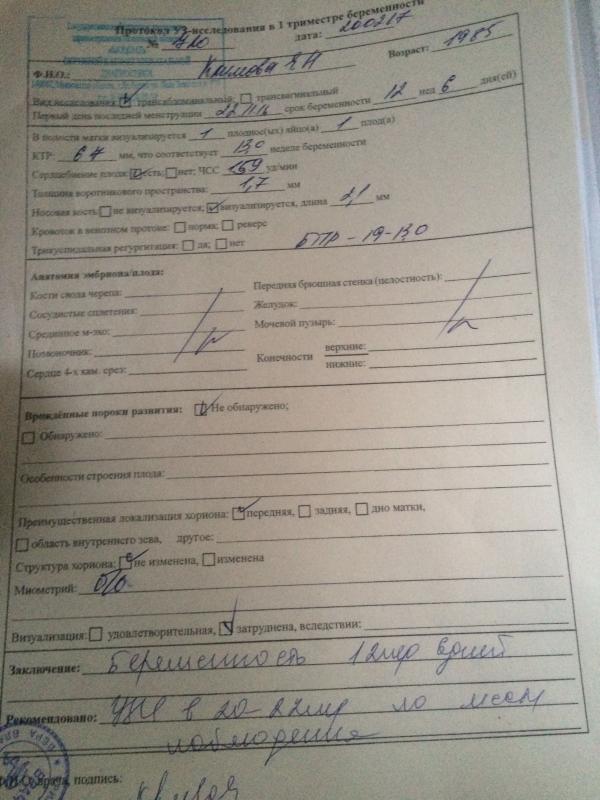 Протокол УЗ-исследования в 1 триместре беременности
№ 710 дата: 200217
Ф.И.О.: Возраст: 1985
Вид исследования трансабдоминальный; трансвагинальный
Первый день последней менструации 221116 срок беременности 12 нед 6 дня(ей)
В полости матки визуализируется 1 плодное(ых) яйцо(а) 1 плод(а)
КТР: 67 мм, что соответствует 13,0 неделе беременности
Сердцебиение плода: есть; нет; ЧСС 159 уд/мин
Толщина воротникового пространства: 1,7 мм
Носовая кость не визуализируется; визуализируется, длина 2,1 мм
Кровоток в венозном протоке: норма; реверс
Трикуспидальная регургитация: да; нет БПР - 19-13,0
Анатомия эмбриона/плода:
Кости свода черепа:
Сосудистые сплетения:
Срединное м-эхо:
Позвоночник:
Сердце 4-х кам. срез:
Передняя брюшная стенка (целостность):
Желудок:
Мочевой пузырь:
Конечности верхние:
нижние:
Врождённые пороки развития: Не обнаружено;
Обнаружено:
Особенности строения плода:
Преимущественная локализация хориона: передняя, задняя, дно матки,
область внутреннего зева, другое:
Структура хориона: не изменена, изменена
Миометрий: б/о
Визуализация: удовлетворительная, затруднена, вследствии:
Заключение: Беременность 12нед 6дней
Рекомендовано: УЗИ в 20-22нед по месту
наблюдения
Ф.И.О. врача, подпись: